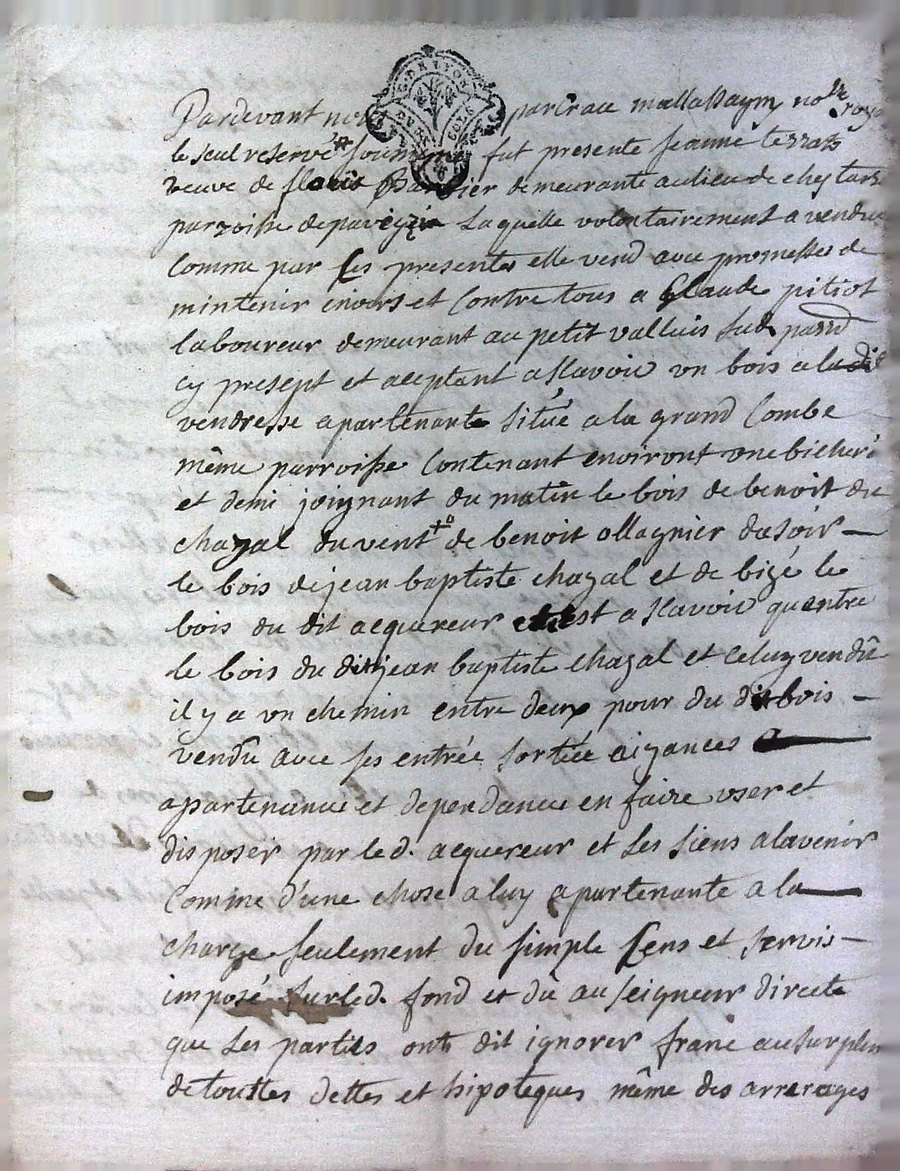 G. DE LYON
DEUX SOLS
Pardevant no parCrau mallassagny no.re roya
le seul reservé soun fut presente jeanne terras
veuve de floris demeurante au lieu de chez tarz
parroisse de pavezin Laquelle volontairement a vendu
Comme par Ces presentes elle vend avec promesses de
mintenir envers et Contre tous a Glaude pitiot
laboureur demeurant au petit valluis sud. parr
cy present et aceptant assavoir un bois a la dit
vendresse apartenante situé a la grand Combe
même parroisse Contenant environt une bicheré
et demi joignant du matin le bois de benoit du
chazal du vent de benoit ollagnier du soir
le bois de jean baptiste chazal et de bize le
bois du dit acquereur est assavoir qu'entre
le bois du dit jean baptiste chazal et Celuy vendû
il y a un chemin entre deux pour du dit bois
vendû avec ses entrée sortiée aizances
apartenance et dependance en faire user et
disposer par led. acquereur et Les siens alavenir
Comme d'une chose a luy apartenante a la
charge seulement du simple Cens et servis
imposé sur led. fond et du au seigneur directe
que Les partis ont dit ignorer franc au surplus
de touttes dettes et hipoteques même des arrerages